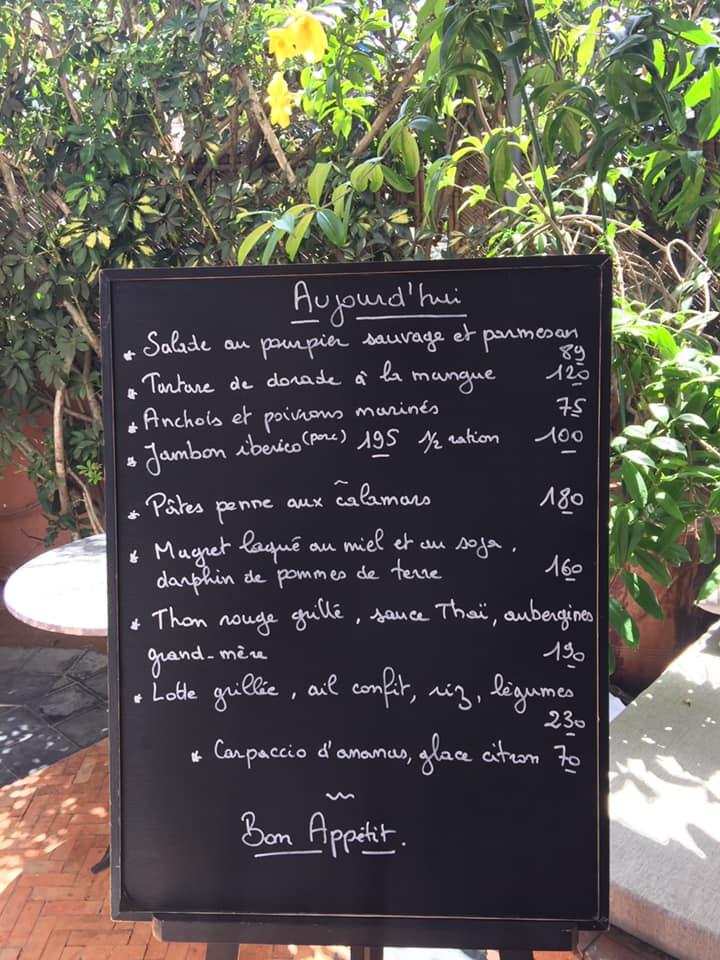 Aujourd'hui
* Salade au pourpier sauvage et parmesan
89
* Tartare de dorade à la mangue 120
* Anchois et poivrons marinés 75
* Jambon iberico (porc) 195 1/2 ration 100
* Pâtes penne aux calamars 180
* Magret laqué au miel et au soja,
darphin de pommes de terre 160
* Thon rouge grillé, sauce Thaï, aubergines
grand-mère 190
* Lotte grillée, ail confit, riz, légumes
230
* Carpaccio d'ananas, glace citron 70
~
Bon Appétit.